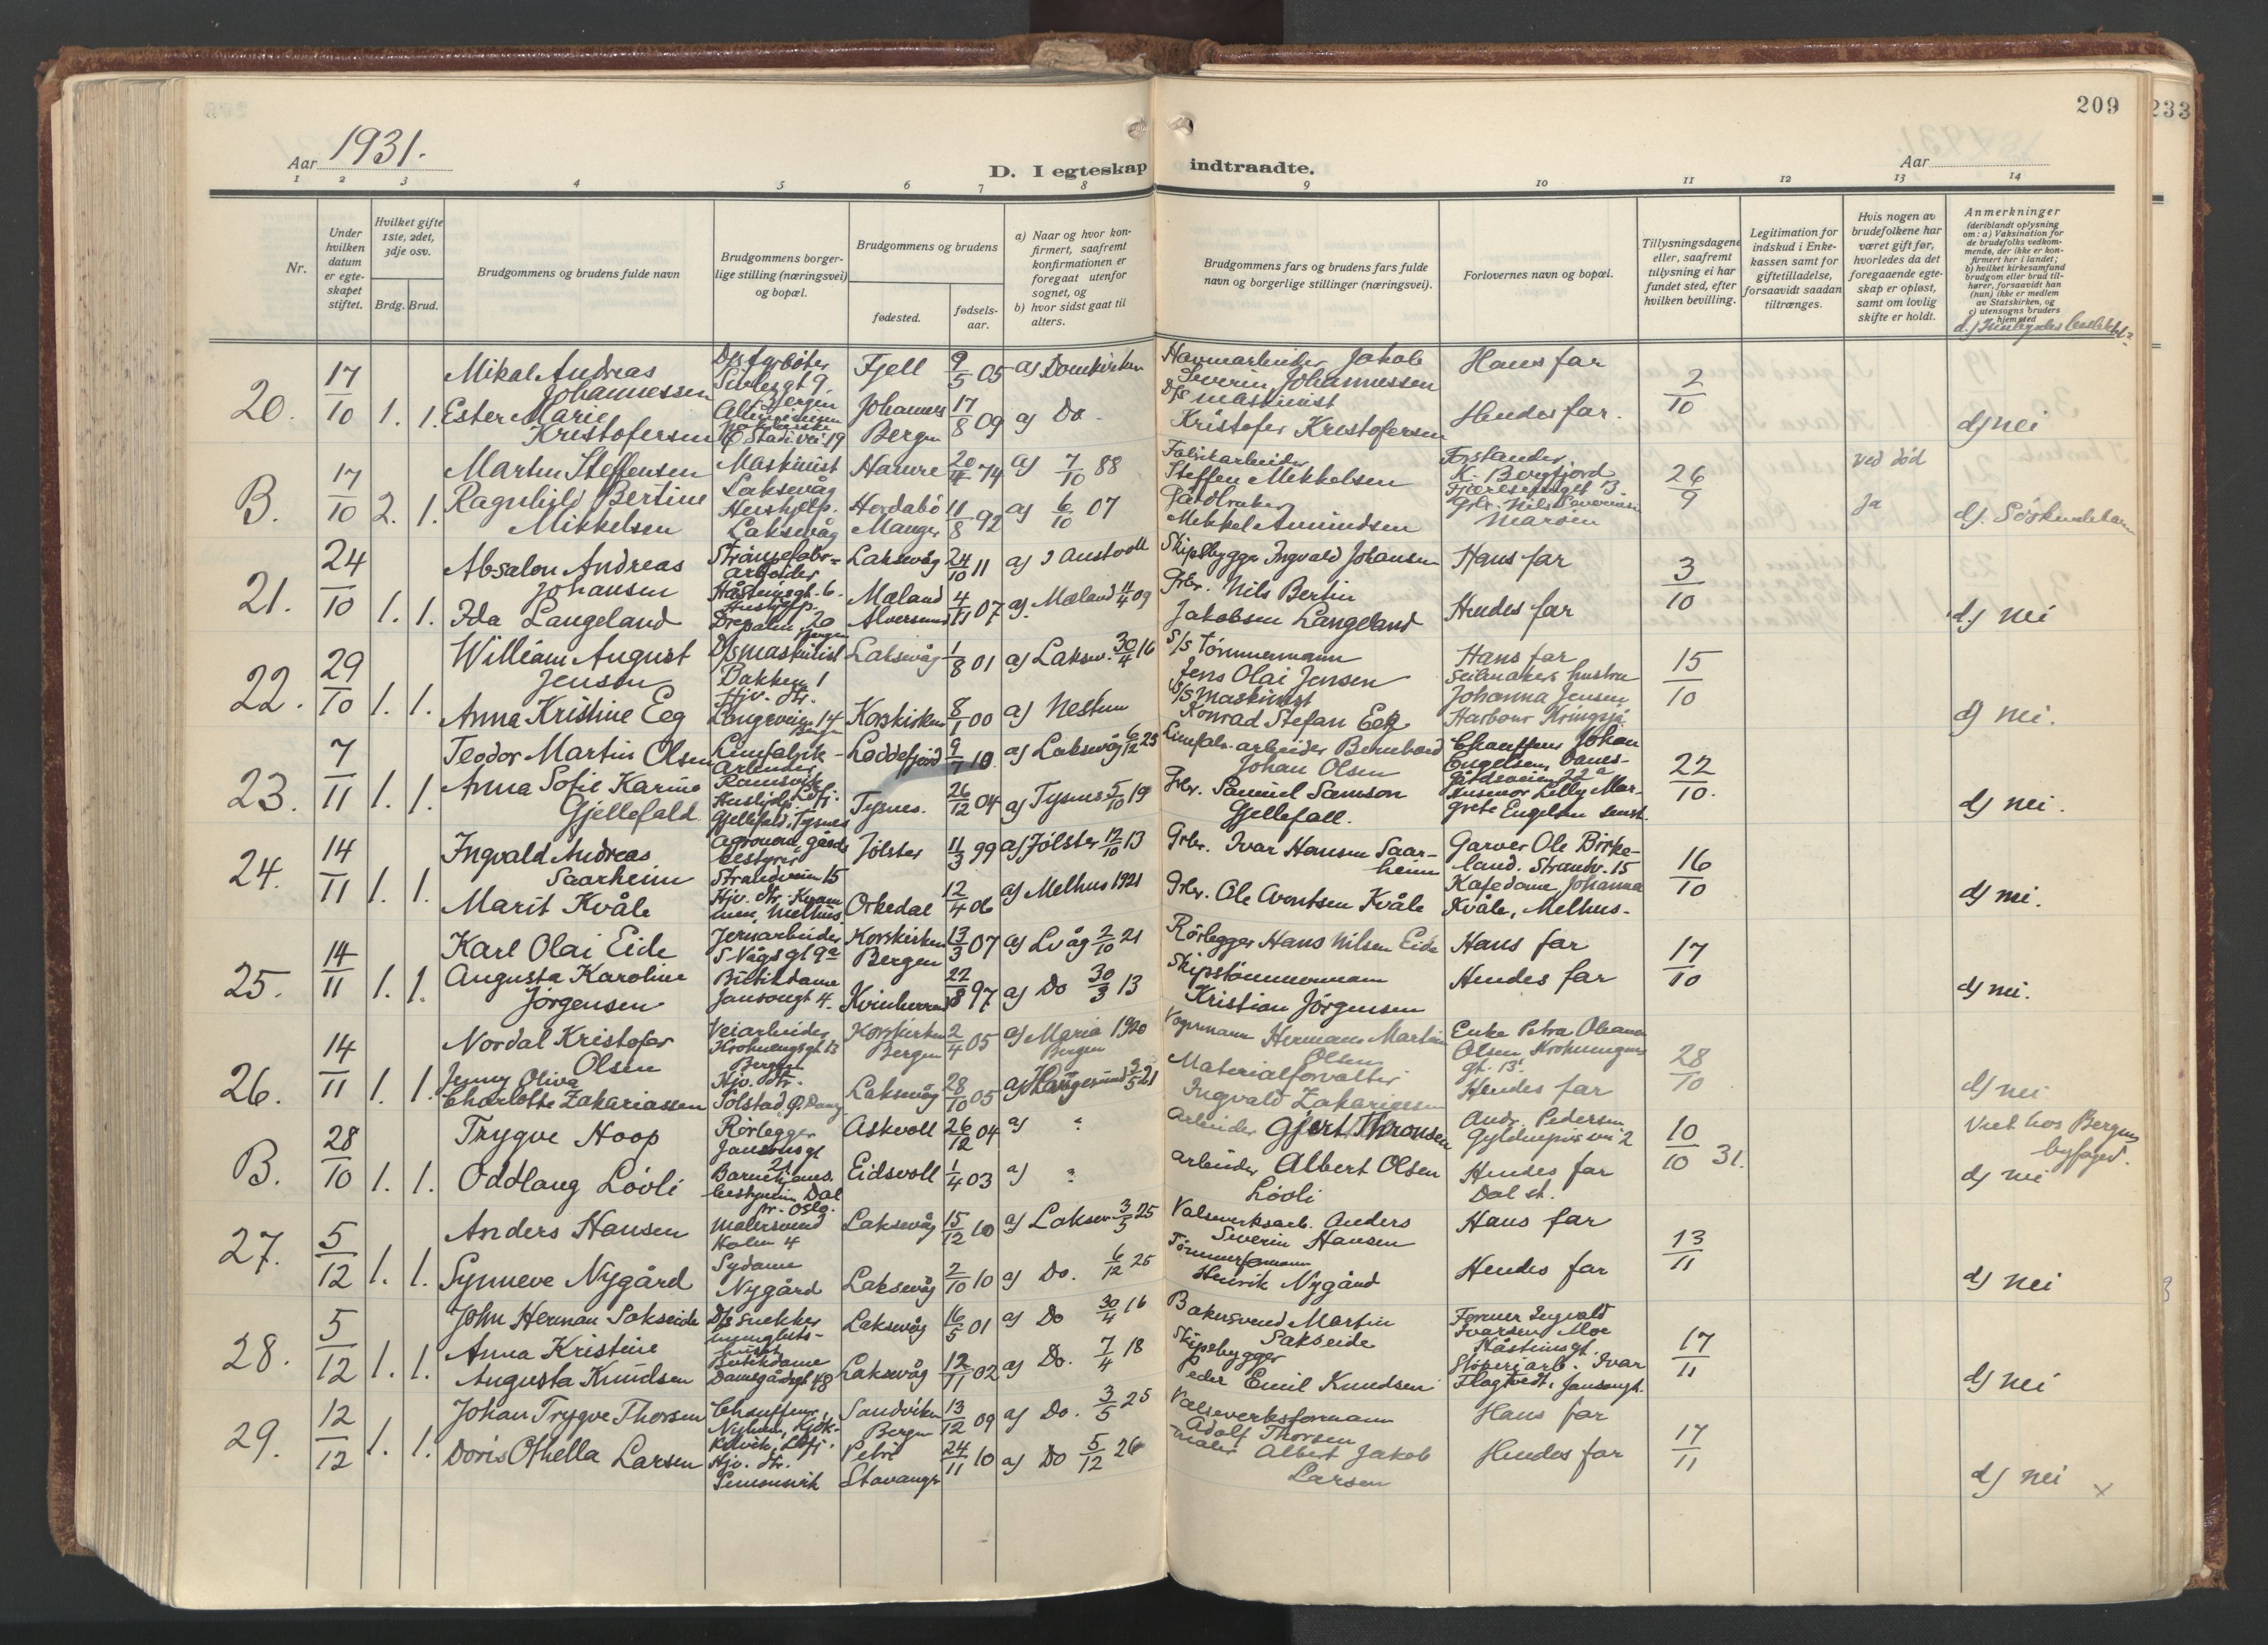 209
233
Aar 1931.
D. I egteskap indtraadte.
Aar
1 2 3 4 5 6 7 8 9 10 11 12 13 14
Nr.
Under hvilken datum er egte-skapet stiftet.
Hvilket gifte 1ste, 2det, 3dje osv.
Brdg. Brud.
Brudgommens og brudens fulde navn
Brudgommens borger-lige stilling (næringsvei) og bopæl.
Brudgommens og brudens
fødested.
fødsels-aar.
a) Naar og hvor kon-firmert, saafremt konfirmationen er foregaat utenfor sognet, og
b) hvor sidst gaat til alters.
Brudgommens fars og brudens fars fulde navn og borgerlige stillinger (næringsvei).
Forlovernes navn og bopæl.
Tillysningsdagene eller, saafremt tillysning ei har fundet sted, efter hvilken bevilling.
Legitimation for indskud i Enke-kassen samt for giftetilladelse, forsaavidt saadan tiltrænges.
Hvis nogen av brudefolkene har været gift før, hvorledes da det foregaaende egte-skap er opløst, samt om lovlig skifte er holdt.
Anmerkninger (deriblandt oplysning om: a) Vaksination for de brudefolks vedkom-mende, der ikke er kon-firmert her i landet; b) hvilket kirkesamfund brudgom eller brud til-hører, forsaavidt han (hun) ikke er medlem av Statskirken, og c) utensogns bruders hjemsted
20. 17/10 1. 1.
Mikal Andreas Johannessen
Fjell 9/5 05 a) Domkirken
Jakob Severin Johannessen
Hans far
2/10
Ester Marie Kristofersen
Johannes Bergen 17/8 09 a) Do.
D/S maskinist Kristofer Kristofersen
Hendes far.
d) nei
B. 17/10 2. 1.
Martin Steffensen
Maskinist Laksevåg
74 a) 7/10 88
Fabrikarbeider Steffen Mikkelsen
Forstander K. Bergfjord
26/9
ved død
Ragnhild Bertine Mikkelsen
Laksevåg
Herdabø Manger 11/8 92 a) 6/10 07
Mikkel Amundsen
ja
21. 24/10 1. 1.
Absalon Andreas Johansen
Laksevåg 24/10 11
Skipsbygger Ingvald Johansen
Hans far
3/10
Ida Langeland
Mæland Alversund 4/11 07 a) Mæland
Grbr. Nils Bertin Jakobsen Langeland
Hendes far
d) nei
22. 29/10 1. 1.
William August Jensen
D/S maskinist Bakken 1
Laksevåg 1/8 01 a) Laksev. 30/4 16
S/S Tømmermann Jens Olai Jensen
Hans far
15/10
Anna Kristine Eeg
Hjv. dtr.
Korskirken 8/1 00 a) Nestun
S/S Maskinist Konrad Stefan Eeg
Seilmakers hustru Johanna Jensen
d) nei.
23. 7/11 1. 1.
Teodor Martin Olsen
Limfabrik-arbeider
Loddefjord 9/7 10 a) Laksevåg 6/12 25
Limfabr. arbeider Bernhard Johan Olsen
Chauffeur Johan Engelsen
22/10.
Anna Sofie Karine Gjellefald
Gjellefald, Tysnes
Tysnes. 26/12 04 a) Tysnes 5/10 19
Grbr. Samuel Samson Gjellefall.
Husmor Lilly Mar-grete Engelsen
d) nei.
24. 14/11 1. 1.
Ingvald Andreas Saarheim
Agronom, gårds-bestyrer Strandveien 15
Jølster 11/3 99 a) Jølster 12/10 13
Grbr. Ivar Hansen Saar-heim
Garver Ole Birke-land. Strandv. 15
16/10
Marit Kvåle
Orkedal 12/4 06 a) Melhus 1921
Grbr. Ole Arntsen Kvåle
Kafedame Johanna Kvåle, Melhus.
d) nei.
25. 14/11 1. 1.
Karl Olai Eide
Jernarbeider
Korskirken Bergen 13/3 07 a) Lvåg 2/10 21
Rørlegger Hans Nilsen Eide
Hans far
17/10
Augusta Karoline Jørgensen
Butikdame Jansongt 4.
Kvinherred 22/8 97 a) Do 30/3 13
Skipstømmermann Kristian Jørgensen
Hendes far
d) nei.
26. 14/11 1. 1.
Nordal Kristofer Olsen
Veiarbeider Krohnengsgt 13 Bergen
Korskirken Bergen 2/4 05 a) Maria Bergen 1920
Herman Martin Olsen
Enke Petra Oleanna Olsen, Krohnengens gt. 13.
28/10
Jenny Oliva Charlotte Zakariassen
Hjv. dtr.
Laksevåg 28/10 05 a) Haugesund
Materialforvalter Ingvald Zakariassen
Hendes far
d) nei
B. 28/10 1. 1.
Trygve Hoop
Rørlegger
Askvoll 26/12 04 a) "
Arbeider Gjert Thronsen
Andr. Pedersen
10/10 31.
Viet hos Bergens byfoged.
Oddlaug Løvli
Eidsvoll 1/4 03 a) "
arbeider Albert Olsen Løvli
Hendes far Dal st.
d) nei
27. 5/12 1. 1.
Anders Hansen
Malersvend Holen 4
Laksevåg 15/12 10 a) Laksev 3/5 25
Valseverksarb. Anders Severin Hansen
Hans far
13/11
Synneve Nygård
Sydame Nygård
Laksevåg 2/10 10 a) Do. 6/12 25
Tømmerformann Henrik Nygård
Hendes far
d) nei
28. 5/12 1. 1.
John Herman Sakseide
D/S Snekker
Laksevåg 16/5 01 a) Do 30/4 16
Bakersvend Martin Sakseide
Former Ingvald Ivarsen Moe Håsteinsgt.
17/11
Anna Kristine Augusta Knudsen
Butikdame Damsgårdsgt 48
Laksevåg 12/11 02 a) Do. 7/4 18
Skipsbygger Peder Emil Knudsen
Støperiarb. Ivar Flagtvedt, Jansongt.
d) nei
29. 12/12 1. 1.
Johan Trygve Thorsen
Chauffeur,
Sandviken Bergen 13/12 09 a) Do. 3/5 25
Valseverksformann Adolf Thorsen
Hans far
17/11
Doris Othella Larsen
Hjv. dtr. Simonsvik
Petri Stavanger 24/11 10 a) Do 5/12 26
Maler Albert Jakob Larsen
Hendes far
d) nei x